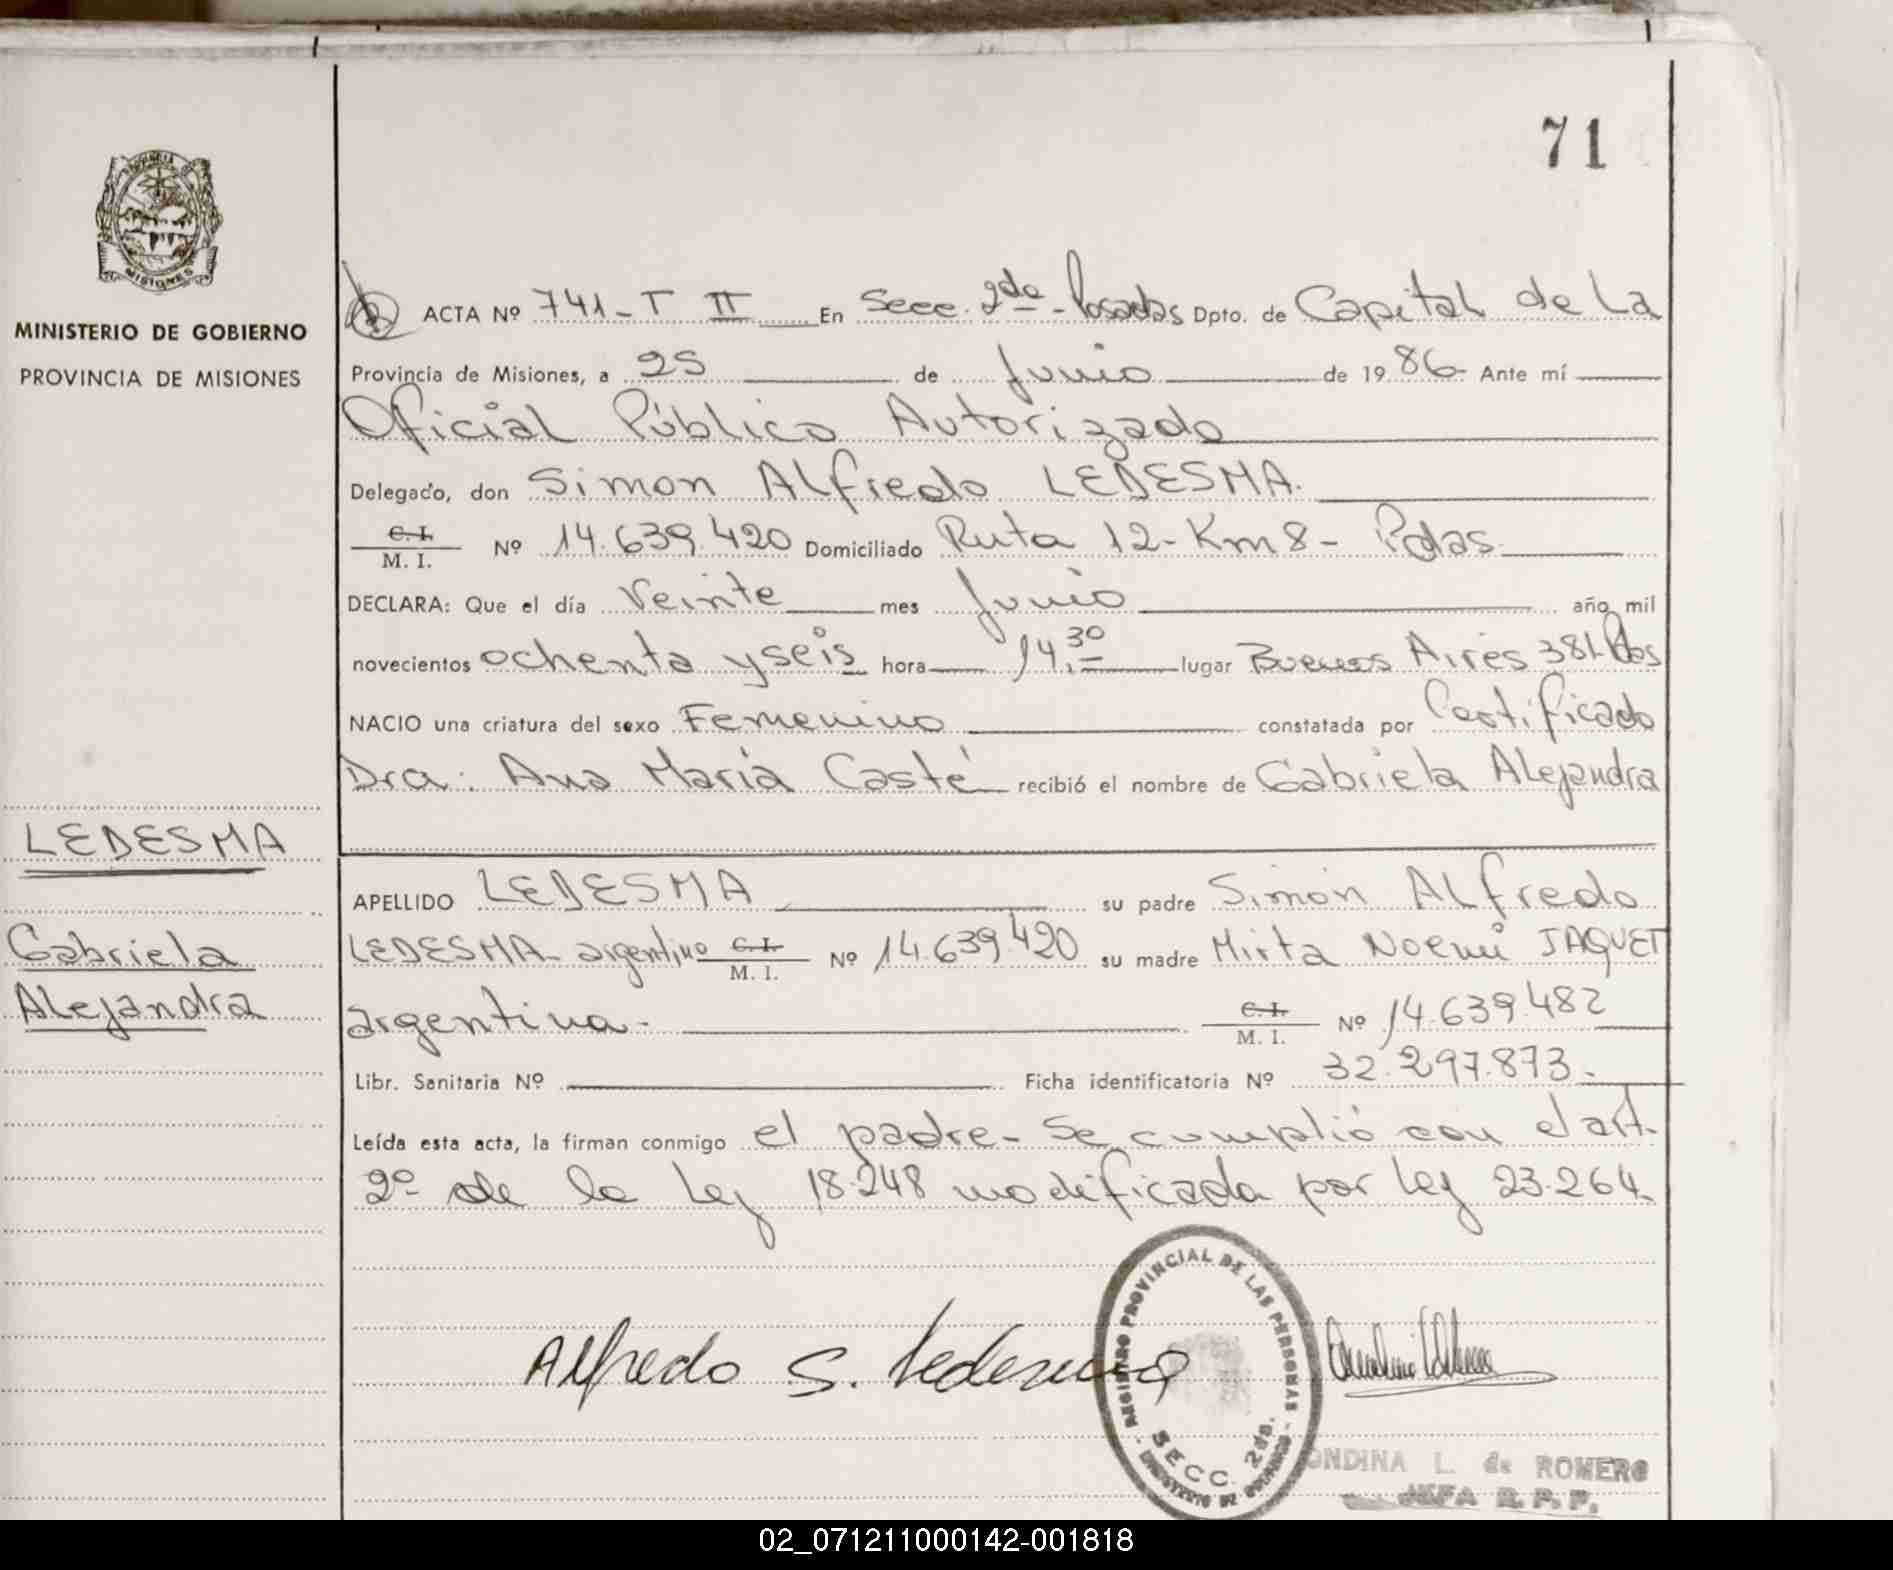 71
MISIONES
MINISTERIO DE GOBIERNO
PROVINCIA DE MISIONES
LEDESMA
Gabriela
Alejandra
ACTA Nº 741-T II En Secc. 2da - Posadas Dpto. de Capital de La
Provincia de Misiones, a 25 de Junio de 1986 - Ante mí
Oficial Público Autorizado
Delegado, don Simon Alfredo LEDESMA.
C. I.
M. I. Nº 14.639.420 Domiciliado Ruta 12 - Km 8 - Pdas.
DECLARA: Que el día Veinte mes Junio año mil
novecientos ochenta y seis hora 14,30 lugar Buenos Aires 381-Pdas
NACIO una criatura del sexo Femenino constatada por Certificado
Dra: Ana María Casté recibió el nombre de Gabriela Alejandra
APELLIDO LEDESMA su padre Simón Alfredo
LEDESMA - argentino C. I. M. I. Nº 14.639.420 su madre Mirta Noemí JAQUET
argentina - C. I. M. I. Nº 14.639.482
Libr. Sanitaria Nº Ficha identificatoria Nº 32.297.873.-
Leída esta acta, la firman conmigo el padre - Se cumplió con el art.
2º de la Ley 18.248 modificada por Ley 23.264.
Alfredo S. Ledesma
REGISTRO PROVINCIAL DE LAS PERSONAS - MINISTERIO DE GOBIERNO -
SECC. 2da.
ONDINA L. de ROMERO
JEFA R. P. P.
02_071211000142-001818